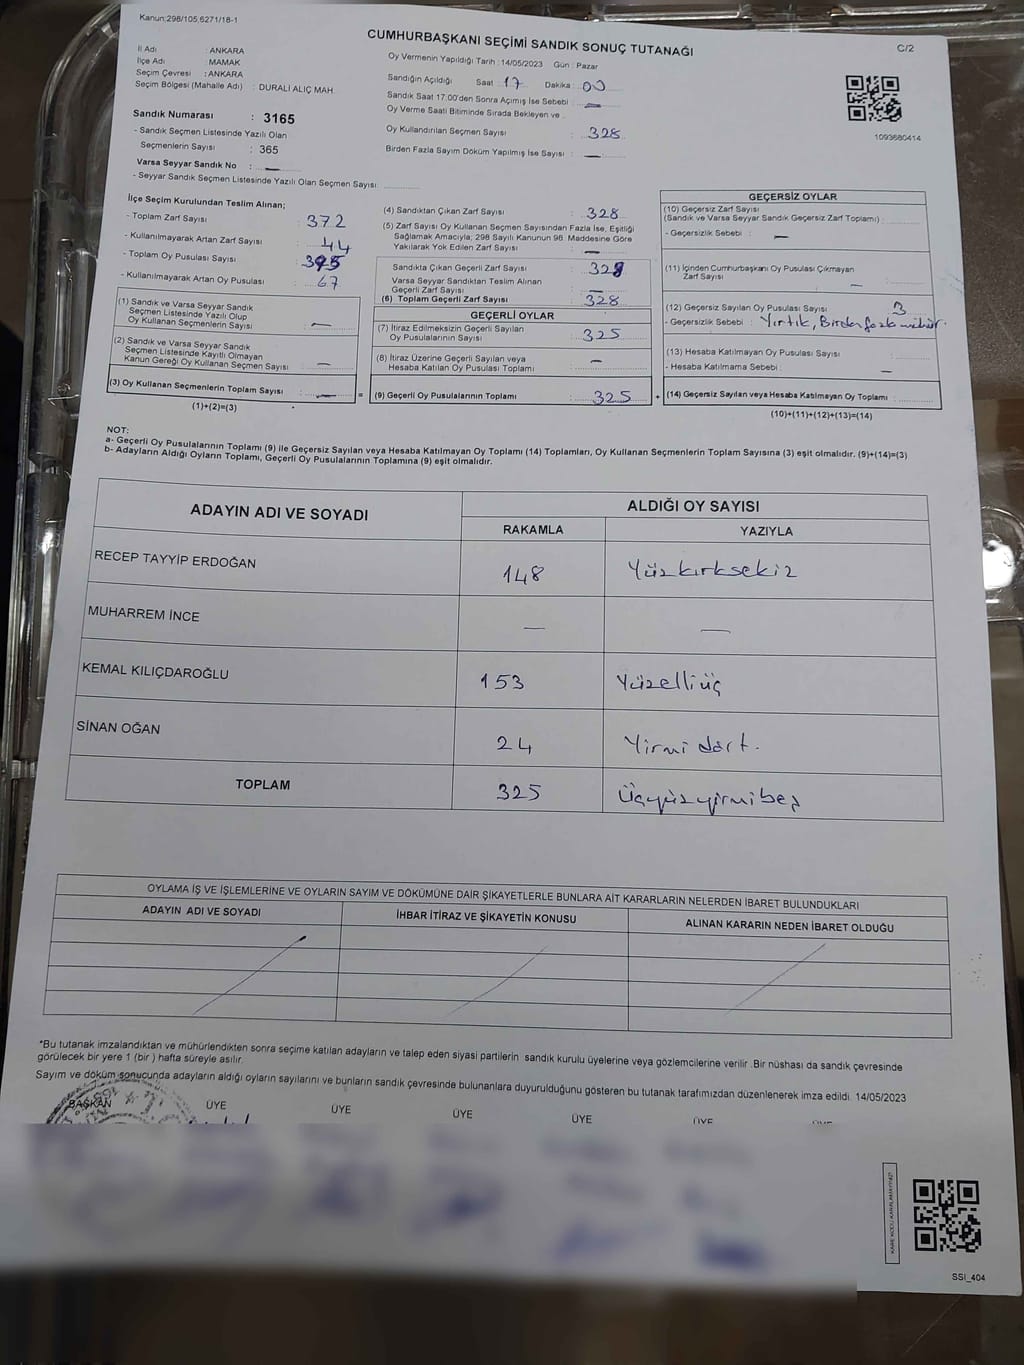 Kanun:298/105,6271/18-1
CUMHURBAŞKANI SEÇİMİ SANDIK SONUÇ TUTANAĞI
C/2
İl Adı : ANKARA
İlçe Adı : MAMAK
Seçim Çevresi : ANKARA
Seçim Bölgesi (Mahalle Adı) : DURALİ ALIÇ MAH.
Oy Vermenin Yapıldığı Tarih : 14/05/2023 Gün : Pazar
Sandığın Açıldığı Saat 17 Dakika : 00
Sandık Saat 17:00'den Sonra Açımış İse Sebebi : —
Oy Verme Saati Bitiminde Sırada Bekleyen ve
Oy Kullandırılan Seçmen Sayısı : 328
Birden Fazla Sayım Döküm Yapılmış İse Sayısı : —
1093680414
Sandık Numarası : 3165
- Sandık Seçmen Listesinde Yazılı Olan
Seçmenlerin Sayısı : 365
Varsa Seyyar Sandık No : —
- Seyyar Sandık Seçmen Listesinde Yazılı Olan Seçmen Sayısı:
İlçe Seçim Kurulundan Teslim Alınan;
- Toplam Zarf Sayısı : 372
- Kullanılmayarak Artan Zarf Sayısı : 44
- Toplam Oy Pusulası Sayısı : 395
- Kullanılmayarak Artan Oy Pusulası : 67
(1) Sandık ve Varsa Seyyar Sandık
Seçmen Listesinde Yazılı Olup
Oy Kullanan Seçmenlerin Sayısı : —
(2) Sandık ve Varsa Seyyar Sandık
Seçmen Listesinde Kayıtlı Olmayan
Kanun Gereği Oy Kullanan Seçmen Sayısı : —
(3) Oy Kullanan Seçmenlerin Toplam Sayısı : —
(1)+(2)=(3)
(4) Sandıktan Çıkan Zarf Sayısı : 328
(5) Zarf Sayısı Oy Kullanan Seçmen Sayısından Fazla İse, Eşitliği
Sağlamak Amacıyla; 298 Sayılı Kanunun 98. Maddesine Göre
Yakılarak Yok Edilen Zarf Sayısı : —
Sandıkta Çıkan Geçerli Zarf Sayısı : 328
Varsa Seyyar Sandıktan Teslim Alınan
Geçerli Zarf Sayısı : —
(6) Toplam Geçerli Zarf Sayısı : 328
GEÇERLİ OYLAR
(7) İtiraz Edilmeksizin Geçerli Sayılan
Oy Pusulalarının Sayısı : 325
(8) İtiraz Üzerine Geçerli Sayılan veya
Hesaba Katılan Oy Pusulası Toplamı : —
= (9) Geçerli Oy Pusulalarının Toplamı : 325
GEÇERSİZ OYLAR
(10) Geçersiz Zarf Sayısı
(Sandık ve Varsa Seyyar Sandık Geçersiz Zarf Toplamı) :
- Geçersizlik Sebebi : —
(11) İçinden Cumhurbaşkanı Oy Pusulası Çıkmayan
Zarf Sayısı : —
(12) Geçersiz Sayılan Oy Pusulası Sayısı : 3
- Geçersizlik Sebebi : Yırtık, Birden fazla mühür.
(13) Hesaba Katılmayan Oy Pusulası Sayısı :
- Hesaba Katılmama Sebebi : —
+ (14) Geçersiz Sayılan veya Hesaba Katılmayan Oy Toplamı :
(10)+(11)+(12)+(13)=(14)
NOT:
a- Geçerli Oy Pusulalarının Toplamı (9) ile Geçersiz Sayılan veya Hesaba Katılmayan Oy Toplamı (14) Toplamları, Oy Kullanan Seçmenlerin Toplam Sayısına (3) eşit olmalıdır. (9)+(14)=(3)
b- Adayların Aldığı Oyların Toplamı, Geçerli Oy Pusulalarının Toplamına (9) eşit olmalıdır.
ADAYIN ADI VE SOYADI
ALDIĞI OY SAYISI
RAKAMLA YAZIYLA
RECEP TAYYİP ERDOĞAN 148 Yüzkırksekiz
MUHARREM İNCE — —
KEMAL KILIÇDAROĞLU 153 Yüzelliüç
SİNAN OĞAN 24 Yirmi dört.
TOPLAM 325 Üçyüzyirmibeş
OYLAMA İŞ VE İŞLEMLERİNE VE OYLARIN SAYIM VE DÖKÜMÜNE DAİR ŞİKAYETLERLE BUNLARA AİT KARARLARIN NELERDEN İBARET BULUNDUKLARI
ADAYIN ADI VE SOYADI İHBAR İTİRAZ VE ŞİKAYETİN KONUSU ALINAN KARARIN NEDEN İBARET OLDUĞU
*Bu tutanak imzalandıktan ve mühürlendikten sonra seçime katılan adayların ve talep eden siyasi partilerin sandık kurulu üyelerine veya gözlemcilerine verilir .Bir nüshası da sandık çevresinde
görülecek bir yere 1 (bir ) hafta süreyle asılır.
Sayım ve döküm sonucunda adayların aldığı oyların sayılarını ve bunların sandık çevresinde bulunanlara duyurulduğunu gösteren bu tutanak tarafımızdan düzenlenerek imza edildi. 14/05/2023
BAŞKAN ÜYE ÜYE ÜYE ÜYE ÜYE ÜYE
KARE KODU KARALAMAYINIZ!
SSI_404